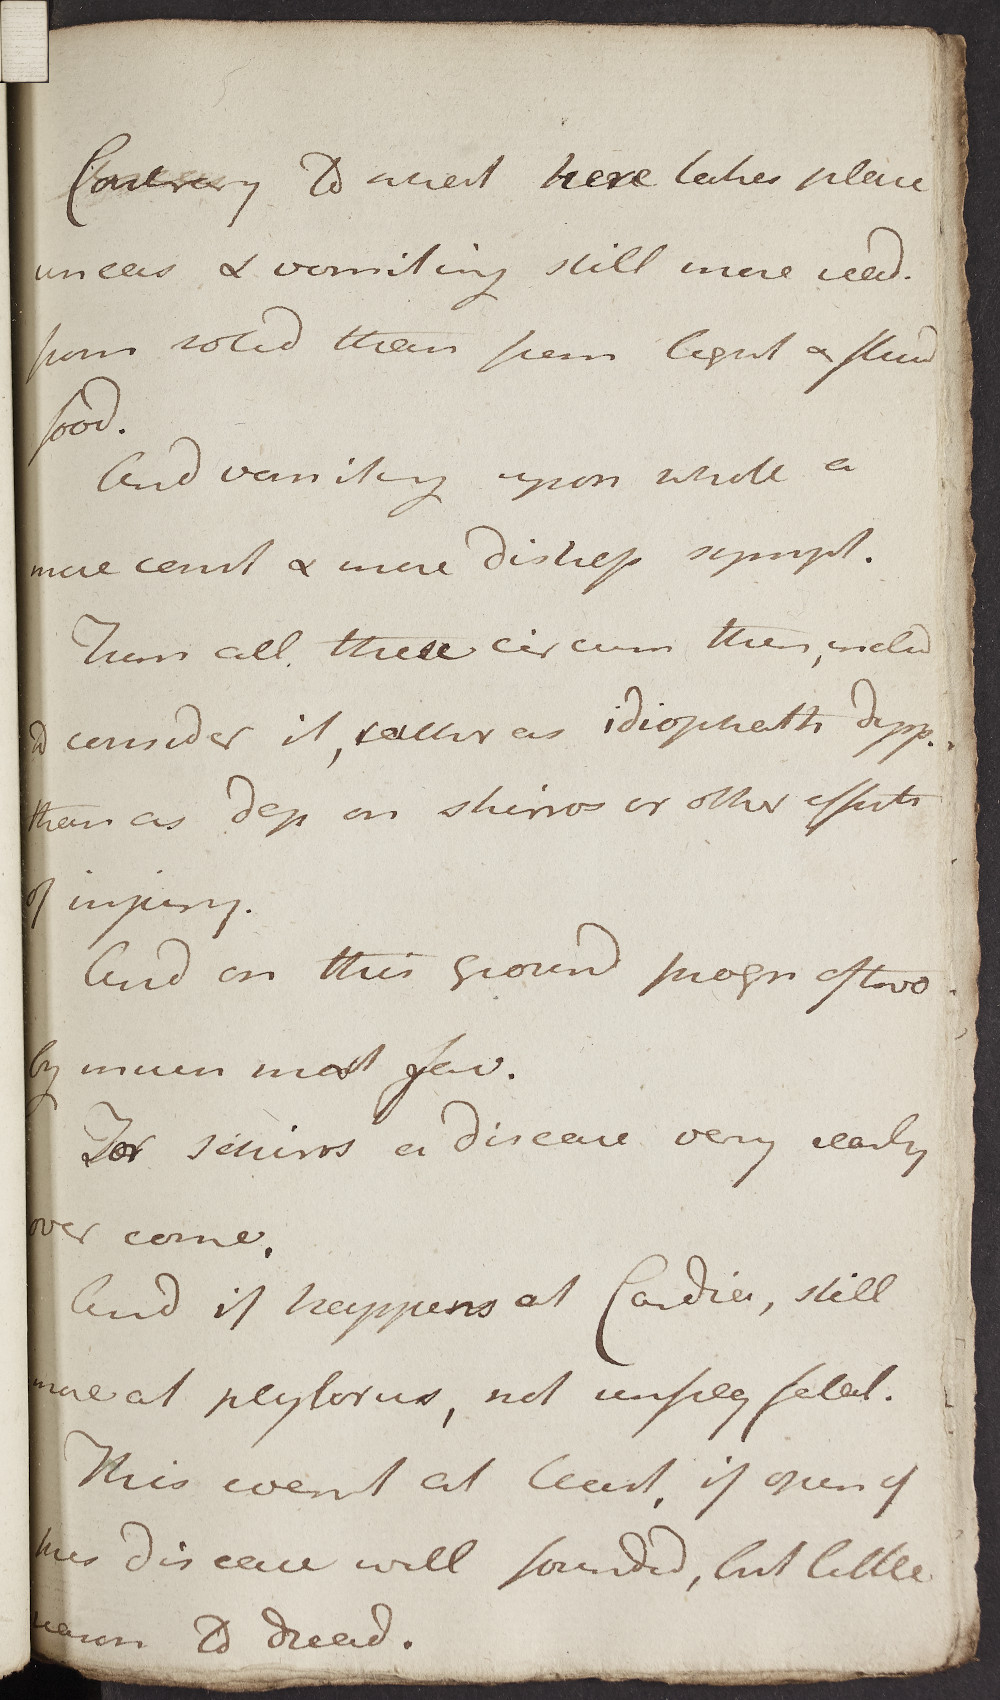 Contrary to what here takes place
uneas & vomiting still more read.
from solid than from liquid & fluid
food.
And vomiting upon whole a
more const & more distress sympt.
From all these circum then, inclin
to consider it, rather as idiopath dysp.
than as dep on skirros or other effects
of injury.
And on this ground progn of two
by much most fav.
For schirros a disease very rarely
over come.
And if happens at Cardia, still
more at pylorus, not unfreq fatal.
This event at least, if opin of
this disease well founded, but little
reason to dread.